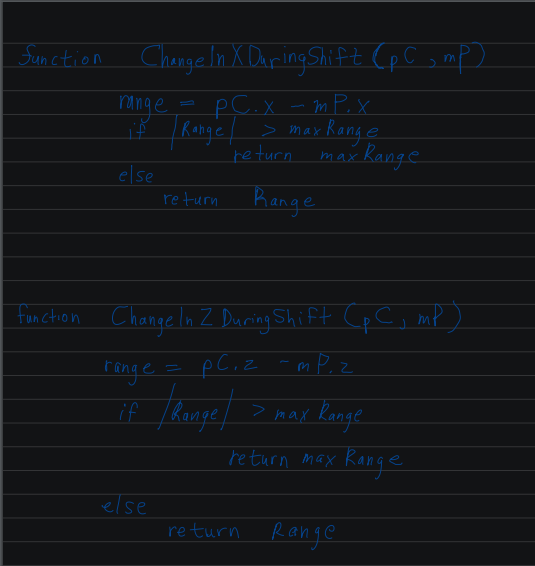 function ChangeInXDuringShift (pC, mP)
range = pC.x - mP.x
if |Range| > maxRange
return maxRange
else
return Range
function ChangeInZDuringShift (pC, mP)
range = pC.z - mP.z
if |Range| > maxRange
return maxRange
else
return Range